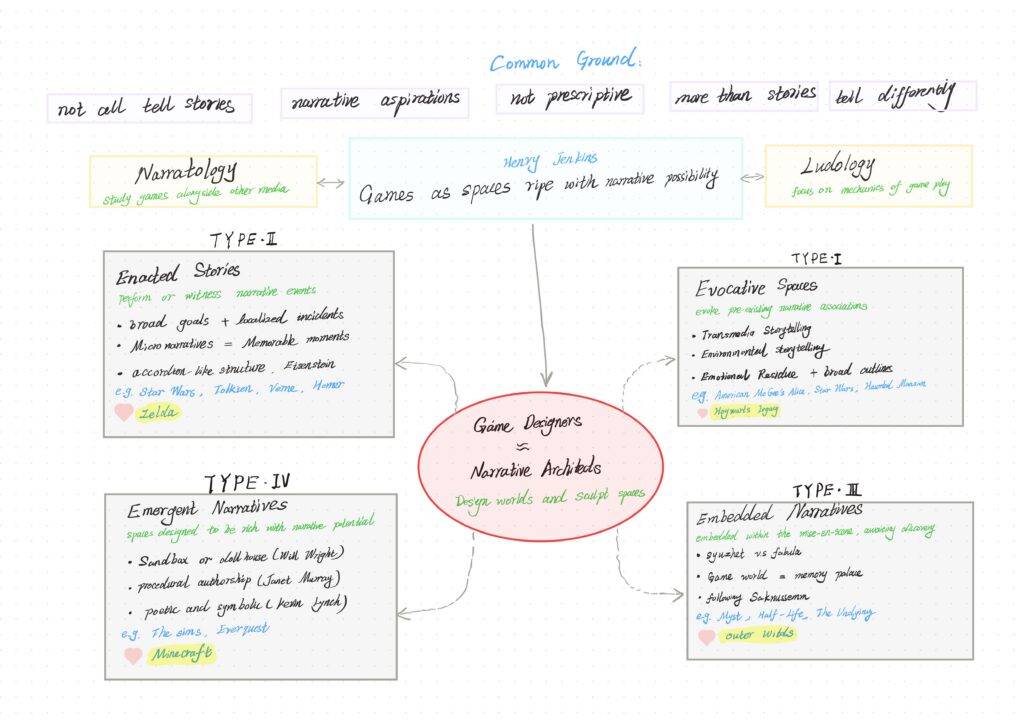 Common Ground:
not all tell stories
narrative aspirations
not prescriptive
more than stories
tell differently
Narratology
study games alongside other media
Henry Jenkins
Games as spaces ripe with narrative possibility
Ludology
focus on mechanics of game play
TYPE·II
Enacted Stories
perform or witness narrative events
• broad goals + localized incidents
• Micronarratives = Memorable moments
• accordion-like structure, Eisenstein
e.g. Star Wars, Tolkien, Verne, Homer
Zelda
TYPE·I
Evocative Spaces
evoke pre-existing narrative associations
• Transmedia Storytelling
• Environmental storytelling
• Emotional Residue + broad outlines
e.g. American McGee's Alice, Star Wars, Haunted Mansion
Hogwarts legacy
Game Designers
≈
Narrative Architects
Design worlds and sculpt spaces
TYPE·IV
Emergent Narratives
spaces designed to be rich with narrative potential
• Sandbox or dollhouse (Will Wright)
• procedural authorship (Janet Murray)
• poetic and symbolic (Kevin Lynch)
e.g. The sims, Everquest
Minecraft
TYPE·III
Embedded Narratives
embedded within the mise-en-scene, awaiting discovery
• syuzhet vs fabula
• Game world = memory palace
• following Saknussemm
e.g. Myst, Half-Life, The Undying
outer Wilds